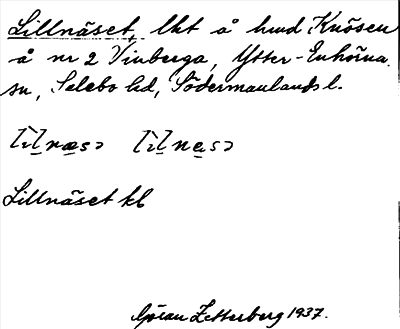 Lillnäset, lkt å hmd Knösen
å nr 2 Vinberga, Ytter-Enhörna
sn, Selebo hd, Södermanlands l.
Lillnäset kl
Göran Zetterberg 1937.